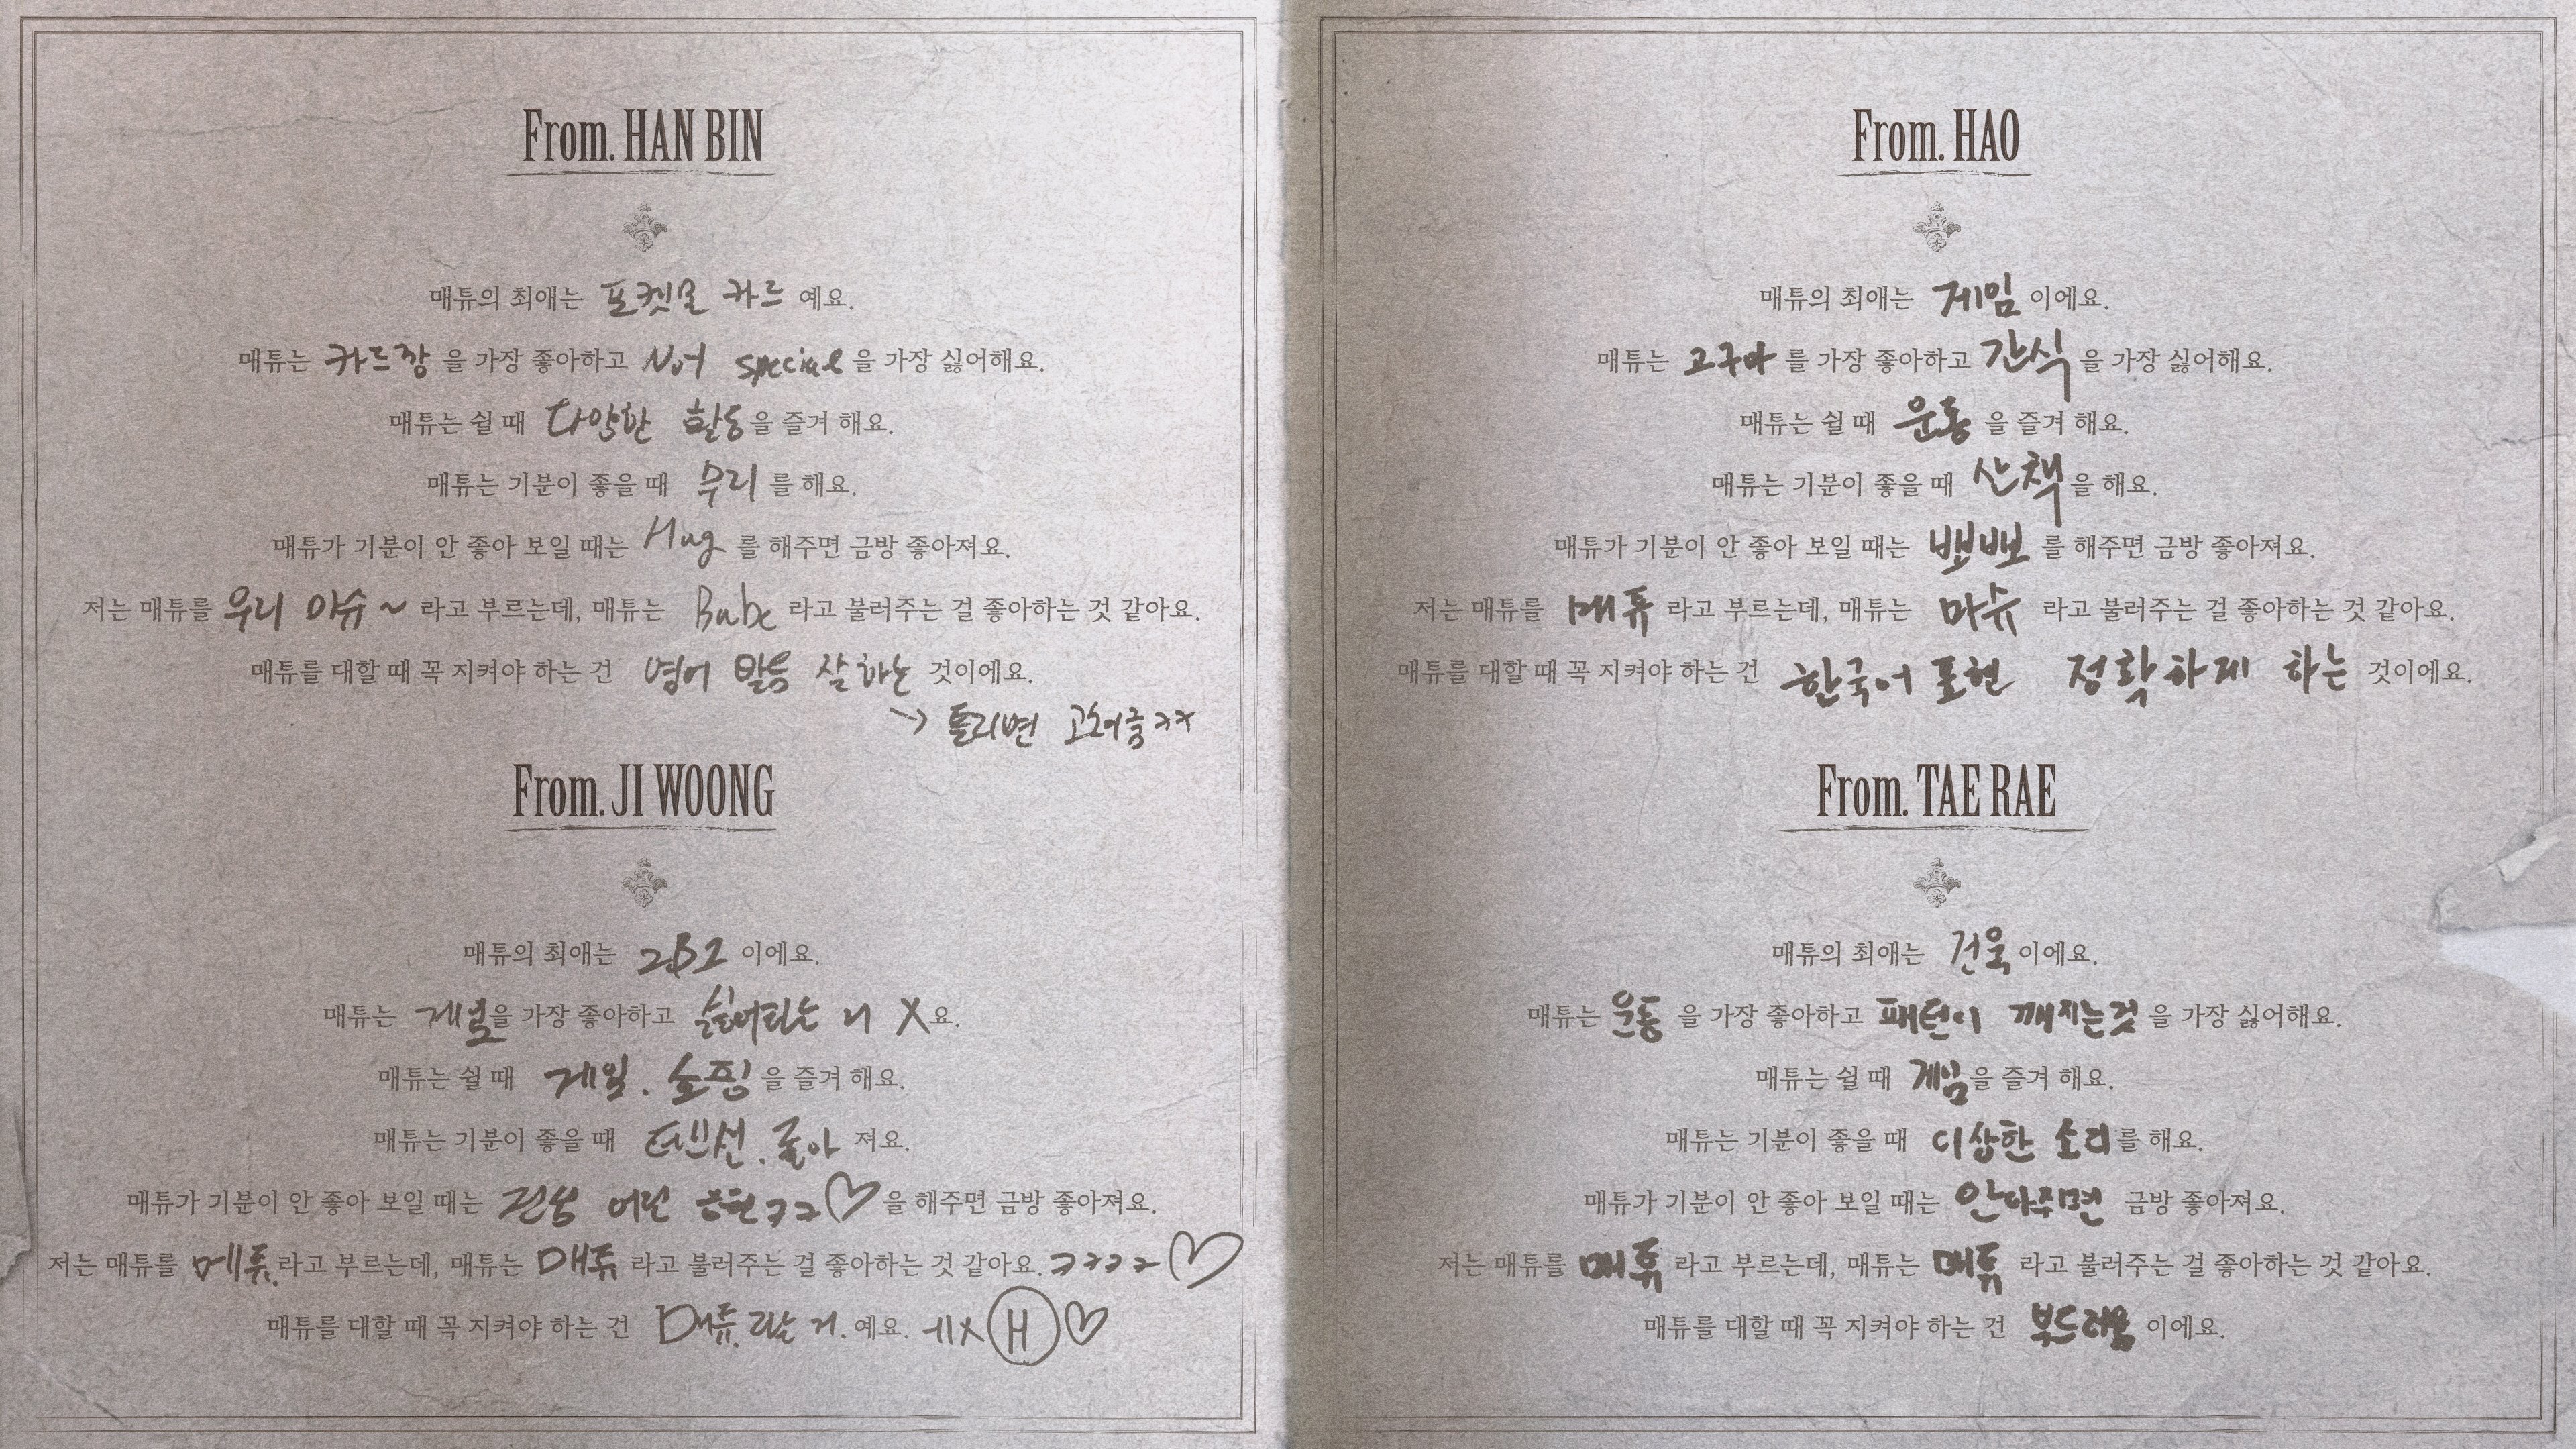 From. HAN BIN
매튜의 최애는 포켓몬 카드 예요.
매튜는 카드깡 을 가장 좋아하고 Not special 을 가장 싫어해요.
매튜는 쉴 때 다양한 활동을 즐겨 해요.
매튜는 기분이 좋을 때 무리 를 해요.
매튜가 기분이 안 좋아 보일 때는 Hug 를 해주면 금방 좋아져요.
저는 매튜를 우리 마슈~ 라고 부르는데, 매튜는 Babe 라고 불러주는 걸 좋아하는 것 같아요.
매튜를 대할 때 꼭 지켜야 하는 건 영어 발음 잘하는 것이에요.
→ 틀리면 고쳐줌ㅋㅋ
From. JI WOONG
매튜의 최애는 ZB1 이에요.
매튜는 을 가장 좋아하고 X요.
매튜는 쉴 때 게임. 쇼핑을 즐겨 해요.
매튜는 기분이 좋을 때 텐션. 좋아 져요.
매튜가 기분이 안 좋아 보일 때는 어린 응원ㅋㅋ♡을 해주면 금방 좋아져요.
저는 매튜를 메튜.라고 부르는데, 매튜는 매튜 라고 불러주는 걸 좋아하는 것 같아요.ㅋㅋㅋㅋ♡
매튜를 대할 때 꼭 지켜야 하는 건 매튜. 예요. H ♡
From. HAO
매튜의 최애는 게임 이에요.
매튜는 고구마 를 가장 좋아하고 간식 을 가장 싫어해요.
매튜는 쉴 때 운동 을 즐겨 해요.
매튜는 기분이 좋을 때 산책을 해요.
매튜가 기분이 안 좋아 보일 때는 뽀뽀 를 해주면 금방 좋아져요.
저는 매튜를 매튜 라고 부르는데, 매튜는 마슈 라고 불러주는 걸 좋아하는 것 같아요.
매튜를 대할 때 꼭 지켜야 하는 건 한국어 표현 정확하게 하는 것이에요.
From. TAE RAE
매튜의 최애는 건욱 이에요.
매튜는 운동 을 가장 좋아하고 패턴이 깨지는것 을 가장 싫어해요.
매튜는 쉴 때 게임을 즐겨 해요.
매튜는 기분이 좋을 때 이상한 소리를 해요.
매튜가 기분이 안 좋아 보일 때는 안아주면 금방 좋아져요.
저는 매튜를 매튜 라고 부르는데, 매튜는 매튜 라고 불러주는 걸 좋아하는 것 같아요.
매튜를 대할 때 꼭 지켜야 하는 건 부드러움 이에요.